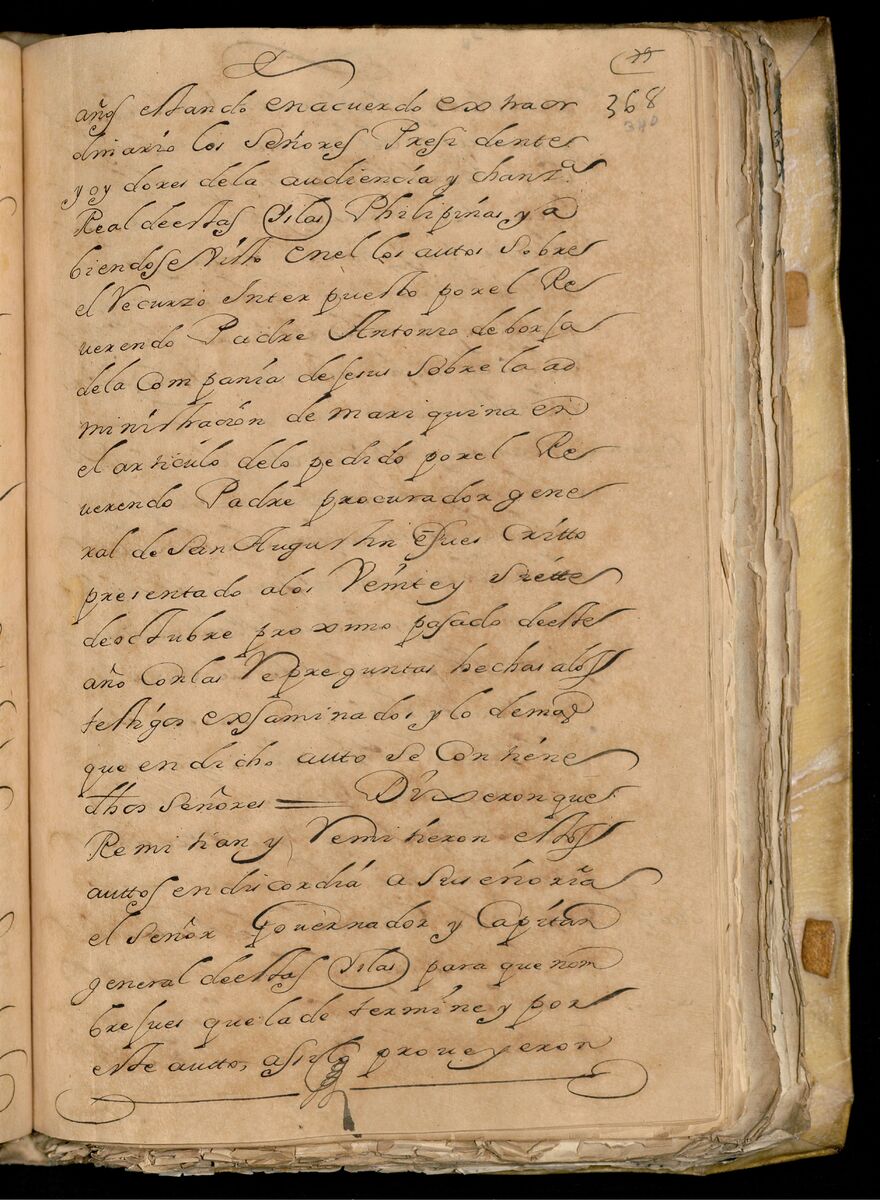 368
340
años estando en acuerdo extraor
dinario los Señores Presidentes
y oydores dela audiencia y chanz.ª
Real de estas Yslas Philipinas y a
biendose Visto enel los autos Sobre
el Recurzo Inter puesto por el Re
uerendo Padre Antonio de borja
dela Compania de Jesus Sobre la ad
ministracion de mariquina en
el articulo delo pedido por el Re
uerendo Padre procurador gene
ral de San Augustin en su es Critto
presentado alos Veinte y Siette
de octubre proximo pasado de este
año Con las Repreguntas hechas alos
testigos exsaminados y lo demas
que en dicho auto se Contiene
dhos Señores = Dixeron que
Remitian y Remitieron estos
auttos en discordia a Su señoria
el Señor Gouernador y Capitan
general de estas Yslas para que nom
bre Jues que la de termine y por
este autto, asi lo proueyeron